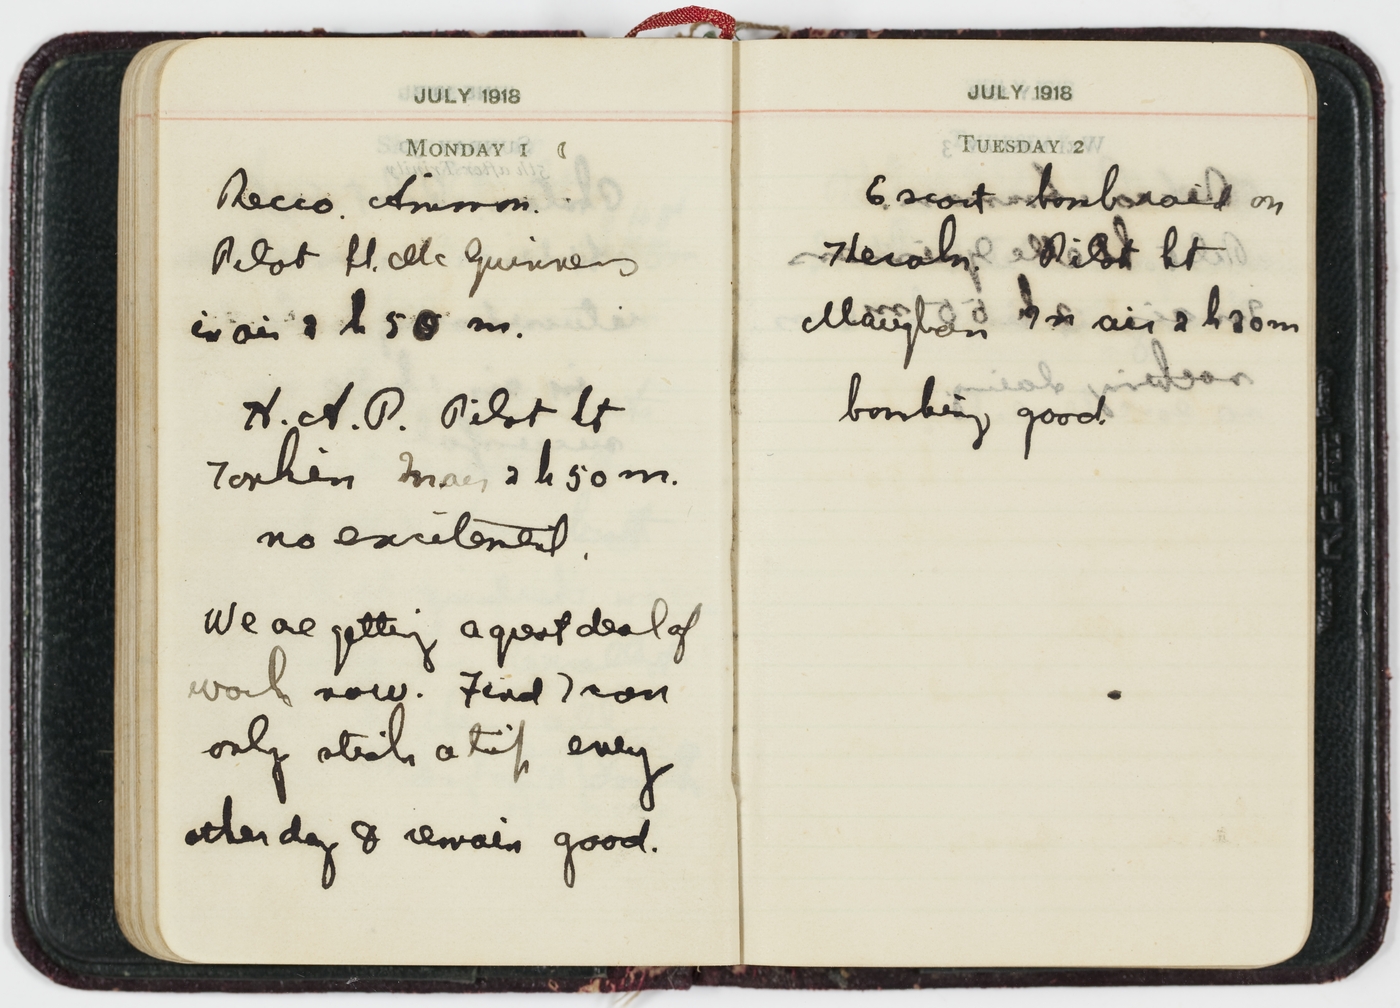 JULY 1918
MONDAY 1
Recco. Amman.
Pilot Lt. Mc Guinness
in air 2 h 50 m.
H.A.P. Pilot Lt
Tonkin In air 2 h 50 m.
no excitement.
We are getting a great deal of
work now. Find I can
only stick a trip every
other day & remain good.
JULY 1918
TUESDAY 2
Escort bombraid on
Pilot Lt
Maughan In air 2 h 20 m
bombing good.